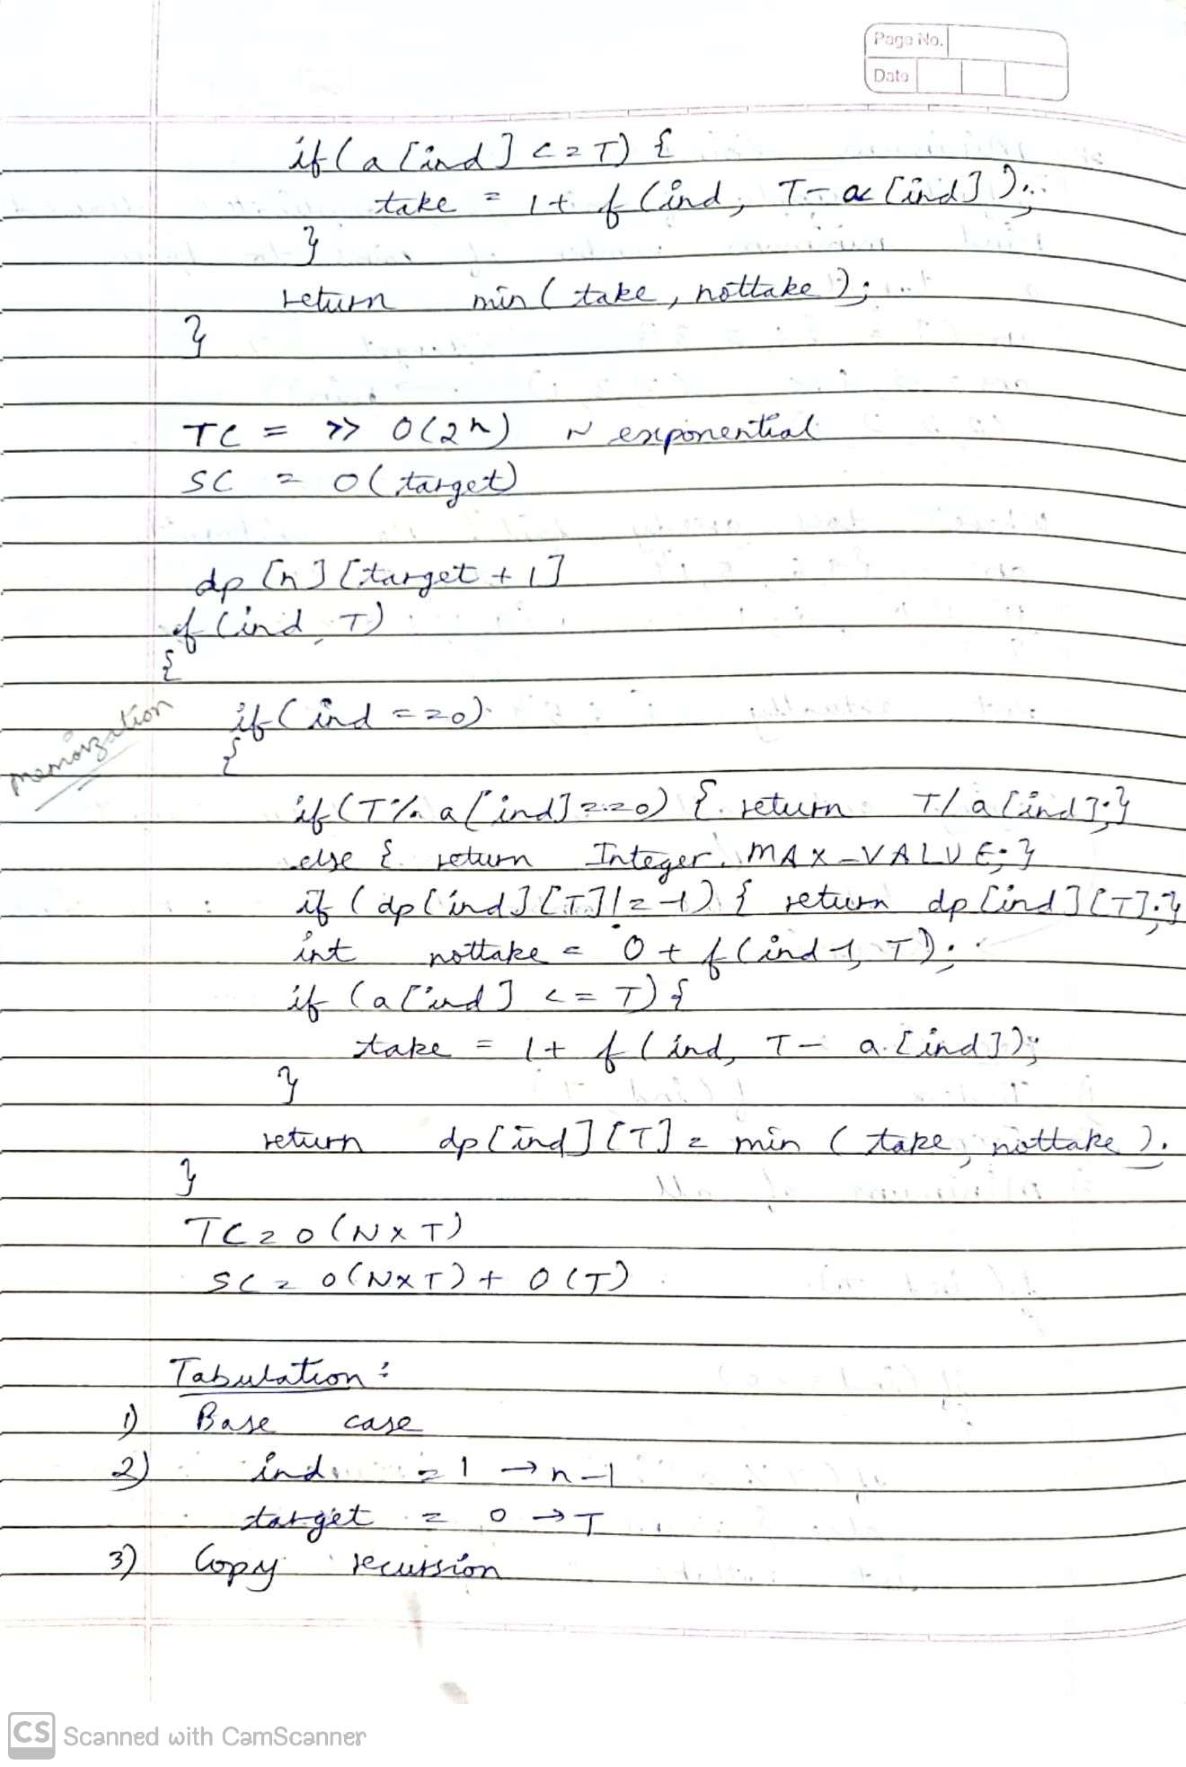 Page No.
Date
if (a [ind] <= T) {
take = 1+ f (ind, T- a [ind] );
}
return min ( take , nottake );
}
TC = >> O(2^n) ~ exponential
SC = O( target)
dp [n] [target + 1]
f (ind, T)
{
memoization
if ( ind ==0)
{
if (T % a [ind] ==0) { return T/a [ind];}
else { return Integer. MAX_VALUE;}
if ( dp [ind] [T] != -1) { return dp [ind] [T];}
int nottake = 0 + f (ind-1, T);
if (a [ind] <= T) {
take = 1+ f ( ind, T- a [ind]);
}
return dp [ind] [T] = min ( take, nottake ).
}
TC = O (N x T)
SC = O(NxT) + O(T)
Tabulation :
1) Base case
2) ind = 1 → n-1
target = 0 → T
3) Copy recursion
CS Scanned with CamScanner